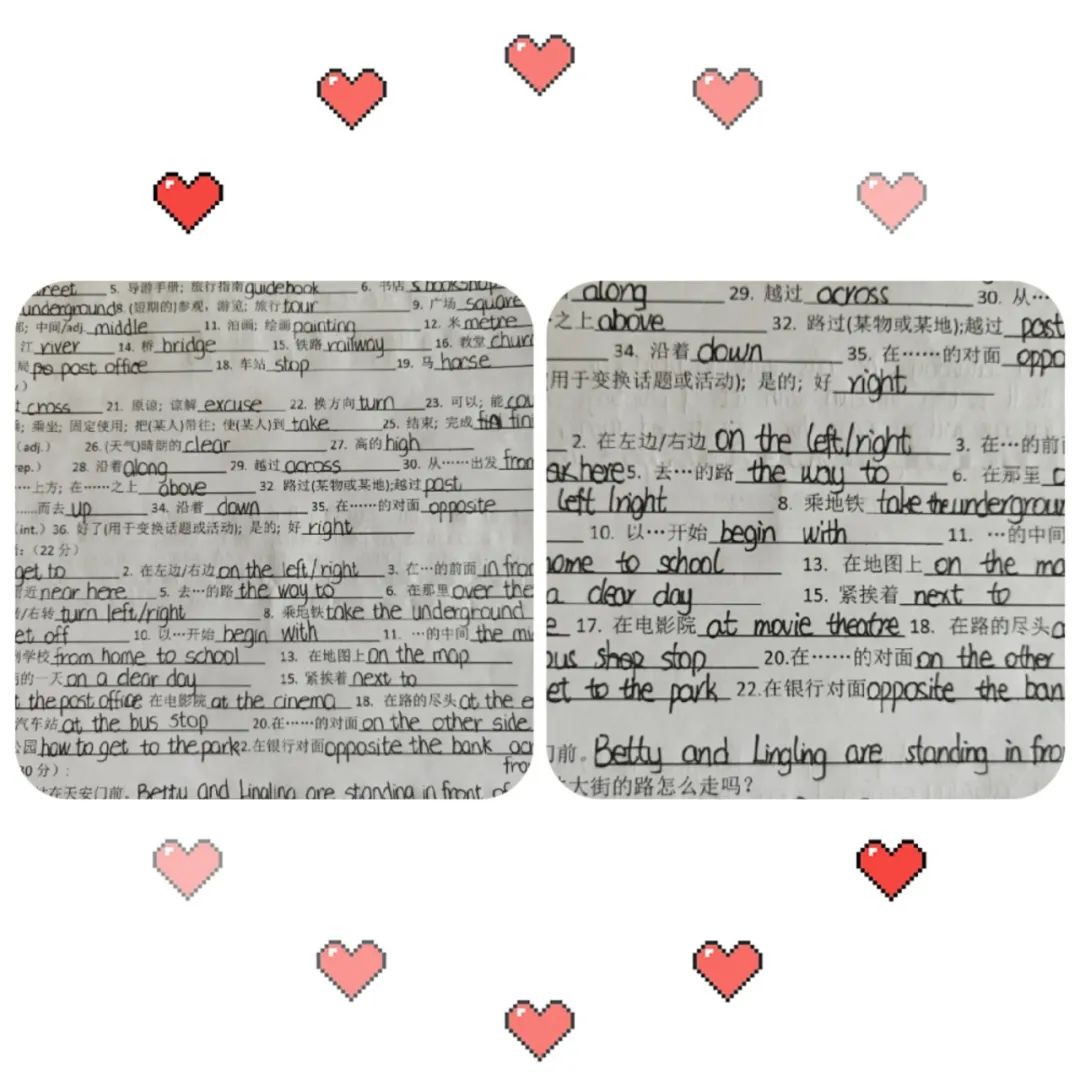 5. 导游手册; 旅行指南 guidebook 6. 书店
underground 8. (短期的)参观, 游览; 旅行 tour 9. 广场 square
中间/adj. middle 11. 油画; 绘画 painting 12. 米 metre
江 river 14. 桥 bridge 15. 铁路 railway 16. 教堂
局 post office 18. 车站 stop 19. 马 horse
cross 21. 原谅; 谅解 excuse 22. 换方向 turn 23. 可以; 能
乘坐; 固定使用; 把(某人)带往; 使(某人)到 take 25. 结束; 完成
(adj.) 26. (天气)晴朗的 clear 27. 高的 high
28. 沿着 along 29. 越过 across 30. 从……出发 from
上方; 在……之上 above 32 路过(某物或某地);越过 past
……而去 up 34. 沿着 down 35. 在……的对面 opposite
(int.) 36. 好了(用于变换话题或活动); 是的; 好 right
(22 分)
get to 2. 在左边/右边 on the left/right 3. 在…的前面 in
近 near here 5. 去…的路 the way to 6. 在那里 over the
/右转 turn left/right 8. 乘地铁 take the underground
off 10. 以…开始 begin with 11. …的中间 the
学校 from home to school 13. 在地图上 on the map
的一天 on a clear day 15. 紧挨着 next to
the post office 在电影院 at the cinema 18. 在路的尽头 at the
汽车站 at the bus stop 20.在……的对面 on the other side
公园 how to get to the park 2.在银行对面 opposite the bank
30 分):
在天安门前. Betty and Lingling are standing in front of
along 29. 越过 across 30. 从…
之上 above 32. 路过(某物或某地);越过 past
34. 沿着 down 35. 在……的对面
用于变换话题或活动); 是的; 好 right
2. 在左边/右边 on the left/right 3. 在…的前
here 5. 去…的路 the way to 6. 在那里
left /right 8. 乘地铁 take the
10. 以…开始 begin with 11. …的中间
to school 13. 在地图上 on the
a clear day 15. 紧挨着 next to
17. 在电影院 at movie theatre 18. 在路的尽头
stop 20.在……的对面 on the other
to the park 22.在银行对面 opposite the
门前. Betty and Lingling are standing in
大街的路怎么走吗?